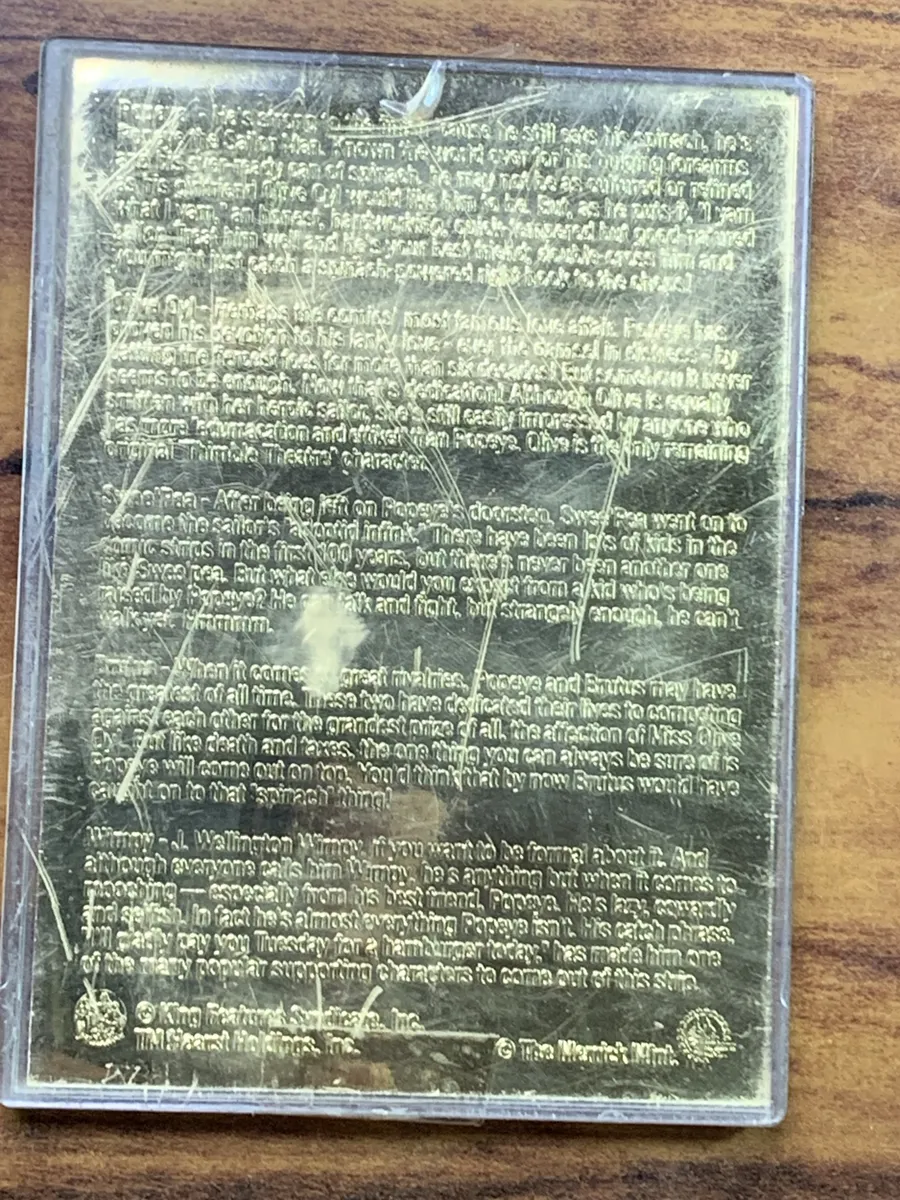 Popeye - He's strong to the finish cause he still eats his spinach, he's
Popeye the Sailor Man. Known the world over for his bulging forearms
and his ever-ready can of spinach, he may not be as cultured or refined
as his girlfriend Olive Oyl would like him to be. But, as he puts it, "I yam
what I yam," an honest, hardworking, quick-tempered but good-natured
sailor. Treat him well and he's your best friend; double-cross him and
you might just catch a spinach-powered right hook to the chops!
Olive Oyl - Perhaps the comics' most famous love affair. Popeye has
proven his devotion to his lanky love - ever the damsel in distress - by
battling the fiercest foes for more than six decades! But somehow it never
seems to be enough. Now that's dedication! Although Olive is equally
smitten with her heroic sailor, she's still easily impressed by anyone who
has more "edumacation and etiket" than Popeye. Olive is the only remaining
original "Thimble Theatre" character.
Swee'Pea - After being left on Popeye's doorstep, Swee'Pea went on to
become the sailor's "adoptid infink." There have been lots of kids in the
comic strips in the first 100 years, but there's never been another one
like Swee'pea. But what else would you expect from a kid who's being
raised by Popeye? He can talk and fight, but strangely enough, he can't
walk yet. Hmmmm.
Brutus - When it comes to great rivalries, Popeye and Brutus may have
the greatest of all time. These two have dedicated their lives to competing
against each other for the grandest prize of all, the affection of Miss Olive
Oyl. But like death and taxes, the one thing you can always be sure of is
Popeye will come out on top. You'd think that by now Brutus would have
caught on to that "spinach" thing!
Wimpy - J. Wellington Wimpy, if you want to be formal about it. And
although everyone calls him Wimpy, he's anything but when it comes to
mooching — especially from his best friend, Popeye. He's lazy, cowardly
and selfish. In fact he's almost everything Popeye isn't. His catch phrase,
"I'll gladly pay you Tuesday for a hamburger today," has made him one
of the many popular supporting characters to come out of this strip.
© King Features Syndicate, Inc.
TM Hearst Holdings, Inc.
© The Merrick Mint.